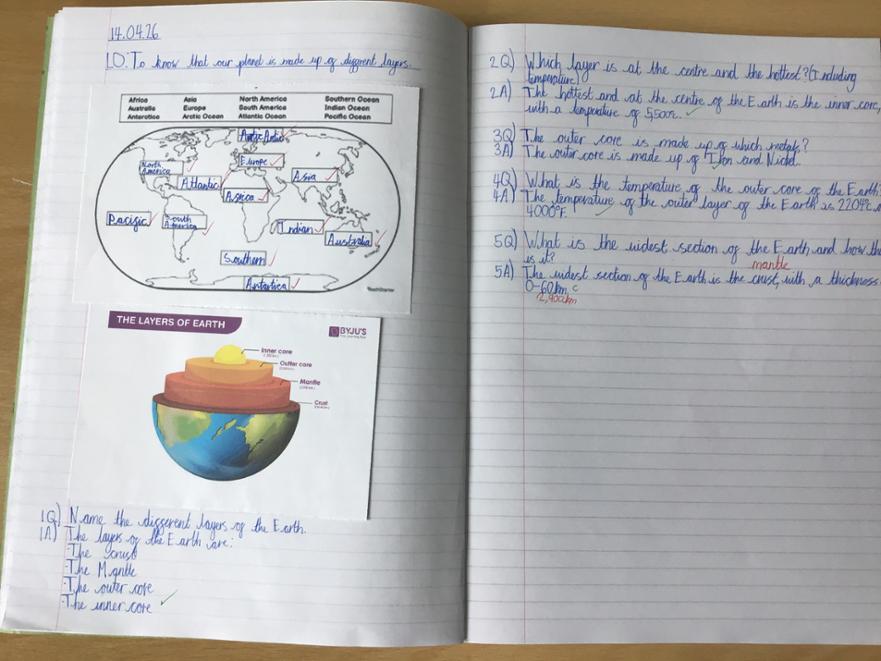 14.04.26
LO: To know that our planet is made up of different layers.
Africa Asia North America Southern Ocean
Australia Europe South America Indian Ocean
Antarctica Arctic Ocean Atlantic Ocean Pacific Ocean
Arctic
Europe
North America
Asia
Atlantic
Africa
Pacific
South America
Indian
Australia
Southern
Antartica
THE LAYERS OF EARTH
BYJU'S
Inner core
Outer core
Mantle
Crust
1Q) Name the different layers of the Earth.
1A) The layers of the Earth are:
·The crust
·The Mantle
·The outer core
·The inner core
2Q) Which layer is at the centre and the hottest? (Including
temperature)
2A) The hottest and at the centre of the Earth is the inner core,
with a temperature of 5,500c.
3Q) The outer core is made up of which metals?
3A) The outer core is made up of Iron and Nickel.
4Q) What is the temperature of the outer core of the Earth?
4A) The temperature of the outer layer of the Earth is 2204°c
4000°F.
5Q) What is the widest section of the Earth and how
is it?
mantle
5A) The widest section of the Earth is the crust, with a thickness
0-60km.
2,900km